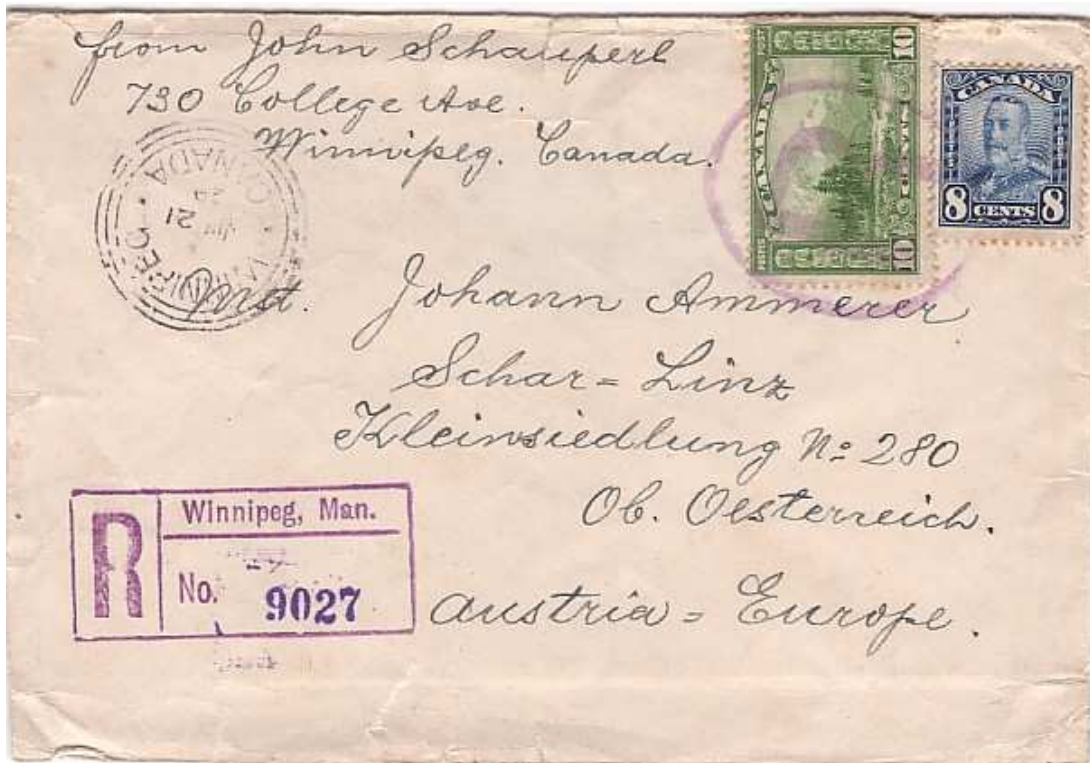 from John Schauperl
730 College Ave.
Winnipeg. Canada.
CANADA
10
10
CANADA
8 CENTS 8
WINNIPEG CANADA
21
29
Johann Ammerer
Schar = Linz
Kleinsiedlung No 280
Ob. Oesterreich.
Austria = Europe.
R
Winnipeg, Man.
No. 9027